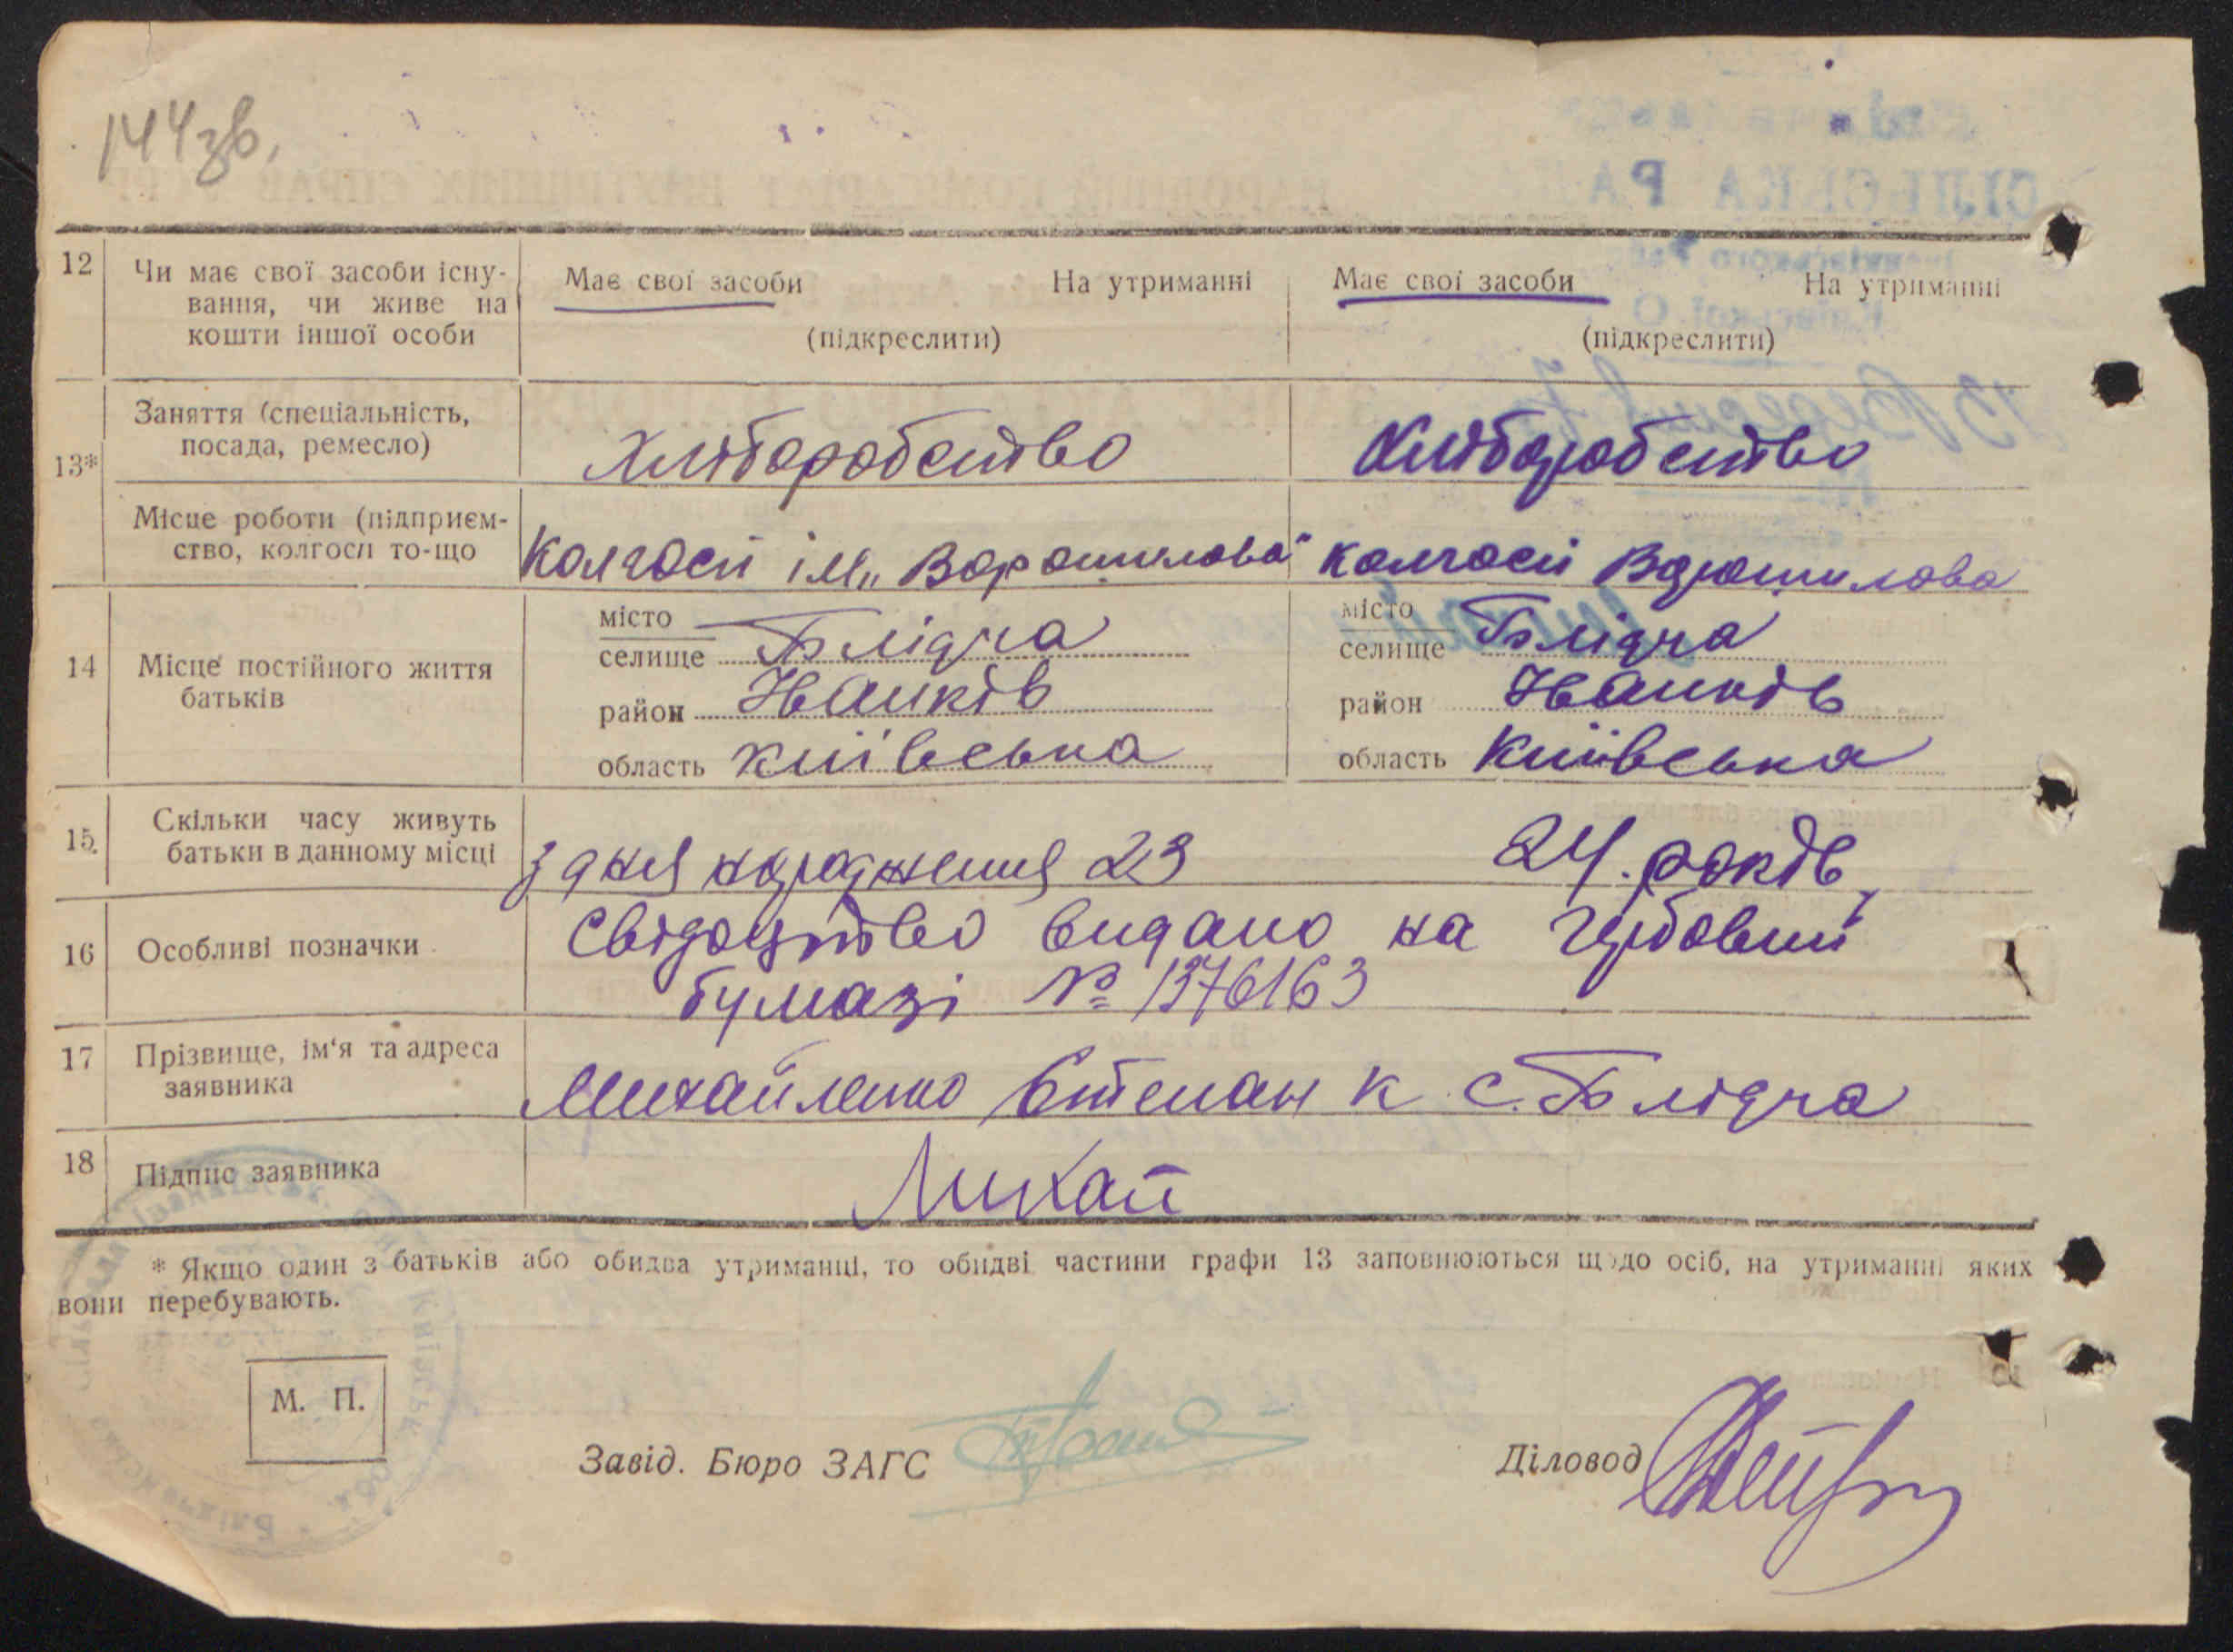 144зв.
12 Чи має свої засоби існу- Має свої засоби На утриманні Має свої засоби На утриманні
вання, чи живе на
кошти іншої особи (підкреслити) (підкреслити)
Заняття (спеціальність,
посада, ремесло) Хліборобство Хліборобство
13*
Місце роботи (підприєм-
ство, колгосп то-що Колгосп ім„ Ворошилова" колгосп Ворошилова
місто місто
селище Блідча селище Блідча
14 Місце постійного життя
батьків
район Іванків район Іванків
область Київська область Київська
15. Скільки часу живуть
батьки в данному місці з дня народження 23 24. років
16 Особливі позначки Свідоцтво видано на гербовий
бумазі № 1376163
17 Прізвище, ім‘я та адреса
заявника Михайленко Степан К с. Блідча
18 Підпис заявника Михай
* Якщо один з батьків або обидва утриманці, то обидві частини графи 13 заповнюються щодо осіб, на утриманні яких
вони перебувають.
М. П.
Завід. Бюро ЗАГС Діловод